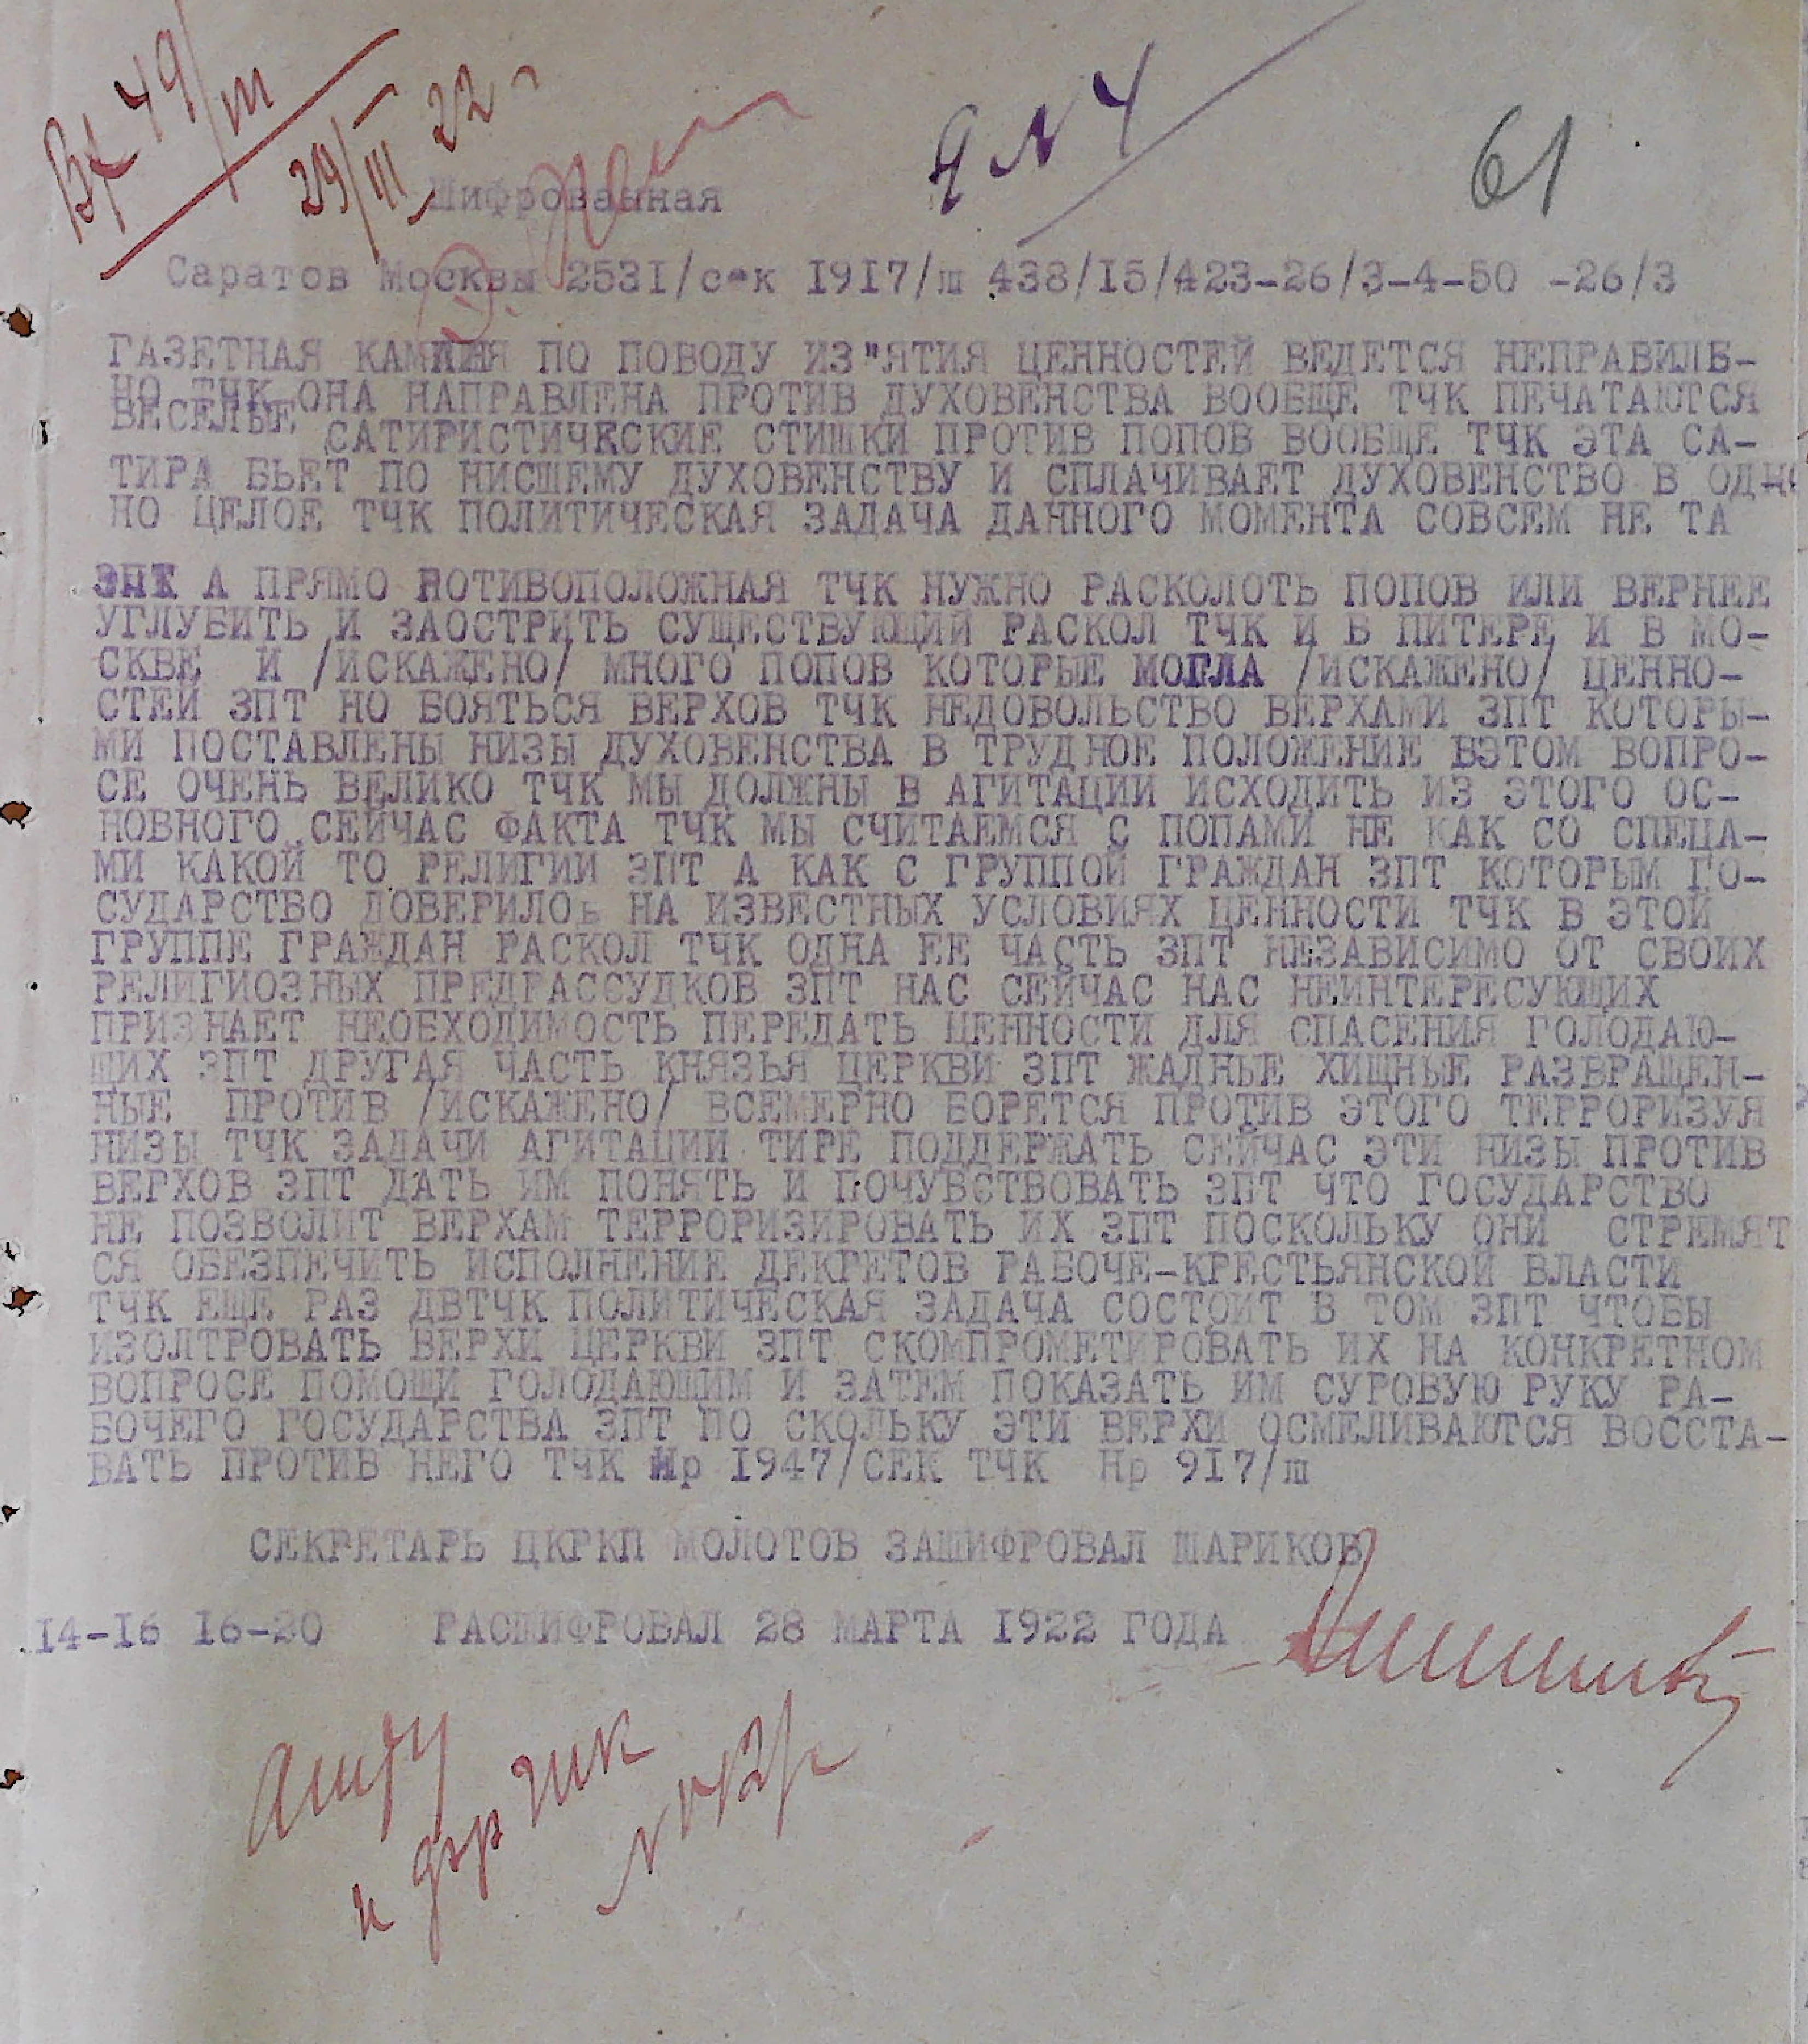 Вх 49/III
29/III 22
Я N 4
61
Шифрованная
Саратов Москвы 2531/сек 1917/ш 438/15/423-26/3-4-50 -26/3
ГАЗЕТНАЯ КАМПНИЯ ПО ПОВОДУ ИЗ"ЯТИЯ ЦЕННОСТЕЙ ВЕДЕТСЯ НЕПРАВИЛЬ-
НО ТЧК ОНА НАПРАВЛЕНА ПРОТИВ ДУХОВЕНСТВА ВООБЩЕ ТЧК ПЕЧАТАЮТСЯ
ВЕСЕЛЫЕ САТИРИСТИЧКСКИЕ СТИШКИ ПРОТИВ ПОПОВ ВООБЩЕ ТЧК ЭТА СА-
ТИРА БЬЕТ ПО НИСШЕМУ ДУХОВЕНСТВУ И СПЛАЧИВАЕТ ДУХОВЕНСТВО В ОДНО
НО ЦЕЛОЕ ТЧК ПОЛИТИЧЕСКАЯ ЗАДАЧА ДАННОГО МОМЕНТА СОВСЕМ НЕ ТА
ЗПТ А ПРЯМО РОТИВОПОЛОЖНАЯ ТЧК НУЖНО РАСКОЛОТЬ ПОПОВ ИЛИ ВЕРНЕЕ
УГЛУБИТЬ И ЗАОСТРИТЬ СУЩЕСТВУЮЩИЙ РАСКОЛ ТЧК И В ПИТЕРЕ И В МО-
СКВЕ И /ИСКАЖЕНО/ МНОГО ПОПОВ КОТОРЫЕ МОГЛА /ИСКАЖЕНО/ ЦЕННО-
СТЕЙ ЗПТ НО БОЯТЬСЯ ВЕРХОВ ТЧК НЕДОВОЛЬСТВО ВЕРХАМИ ЗПТ КОТОРЫ-
МИ ПОСТАВЛЕНЫ НИЗЫ ДУХОВЕНСТВА В ТРУДНОЕ ПОЛОЖЕНИЕ ВЭТОМ ВОПРО-
СЕ ОЧЕНЬ ВЕЛИКО ТЧК МЫ ДОЛЖНЫ В АГИТАЦИИ ИСХОДИТЬ ИЗ ЭТОГО ОС-
НОВНОГО СЕЙЧАС ФАКТА ТЧК МЫ СЧИТАЕМСЯ С ПОПАМИ НЕ КАК СО СПЕЦА-
МИ КАКОЙ ТО РЕЛИГИИ ЗПТ А КАК С ГРУППОЙ ГРАЖДАН ЗПТ КОТОРЫМ ГО-
СУДАРСТВО ДОВЕРИЛОь НА ИЗВЕСТНЫХ УСЛОВИЯХ ЦЕННОСТИ ТЧК В ЭТОЙ
ГРУППЕ ГРАЖДАН РАСКОЛ ТЧК ОДНА ЕЕ ЧАСТЬ ЗПТ НЕЗАВИСИМО ОТ СВОИХ
РЕЛИГИОЗНЫХ ПРЕДРАССУДКОВ ЗПТ НАС СЕЙЧАС НАС НЕИНТЕРЕСУЮЩИХ
ПРИЗНАЕТ НЕОБХОДИМОСТЬ ПЕРЕДАТЬ ЦЕННОСТИ ДЛЯ СПАСЕНИЯ ГОЛОДАЮ-
ЩИХ ЗПТ ДРУГАЯ ЧАСТЬ КНЯЗЬЯ ЦЕРКВИ ЗПТ ЖАДНЫЕ ХИЩНЫЕ РАЗВРАЩЕН-
НЫЕ ПРОТИВ /ИСКАЖЕНО/ ВСЕМЕРНО БОРЕТСЯ ПРОТИВ ЭТОГО ТЕРРОРИЗУЯ
НИЗЫ ТЧК ЗАДАЧИ АГИТАЦИИ ТИРЕ ПОДДЕРЖАТЬ СЕЙЧАС ЭТИ НИЗЫ ПРОТИВ
ВЕРХОВ ЗПТ ДАТЬ ИМ ПОНЯТЬ И ПОЧУВСТВОВАТЬ ЗПТ ЧТО ГОСУДАРСТВО
НЕ ПОЗВОЛИТ ВЕРХАМ ТЕРРОРИЗИРОВАТЬ ИХ ЗПТ ПОСКОЛЬКУ ОНИ СТРЕМЯТ
СЯ ОБЕЗПЕЧИТЬ ИСПОЛНЕНИЕ ДЕКРЕТОВ РАБОЧЕ-КРЕСТЬЯНСКОЙ ВЛАСТИ
ТЧК ЕЩЕ РАЗ ДВТЧК ПОЛИТИЧЕСКАЯ ЗАДАЧА СОСТОИТ В ТОМ ЗПТ ЧТОБЫ
ИЗОЛТРОВАТЬ ВЕРХИ ЦЕРКВИ ЗПТ СКОМПРОМЕТИРОВАТЬ ИХ НА КОНКРЕТНОМ
ВОПРОСЕ ПОМОЩИ ГОЛОДАЮЩИМ И ЗАТЕМ ПОКАЗАТЬ ИМ СУРОВУЮ РУКУ РА-
БОЧЕГО ГОСУДАРСТВА ЗПТ ПО СКОЛЬКУ ЭТИ ВЕРХИ ОСМЕЛИВАЮТСЯ ВОССТА-
ВАТЬ ПРОТИВ НЕГО ТЧК Нр 1947/СЕК ТЧК Нр 917/ш
СЕКРЕТАРЬ ЦКРКП МОЛОТОВ ЗАШИФРОВАЛ ШАРИКОВ
14-16 16-20 РАСШИФРОВАЛ 28 МАРТА 1922 ГОДА